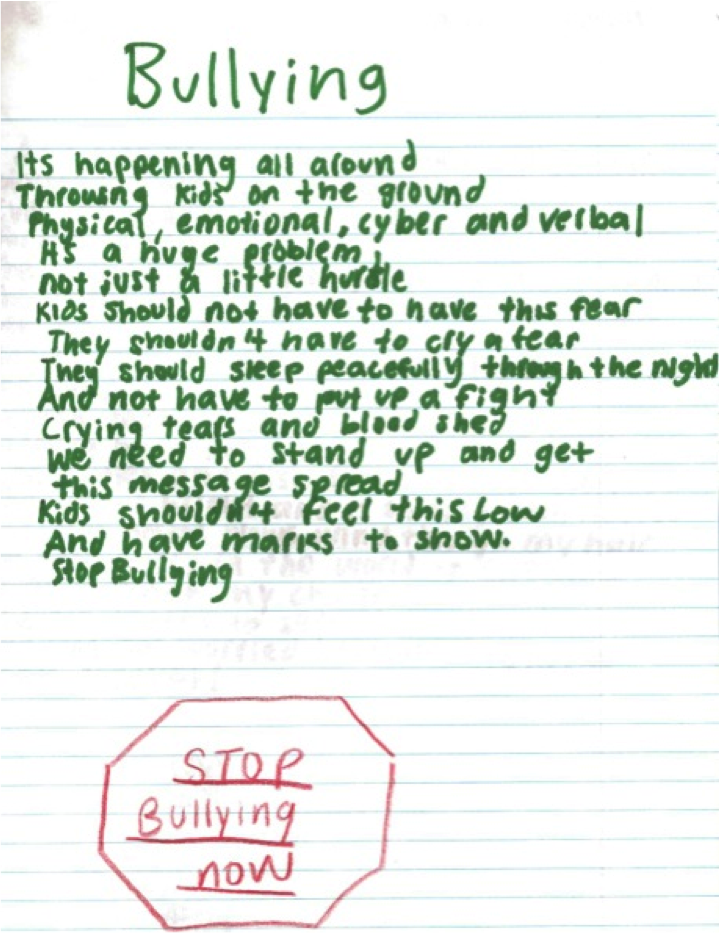 Bullying
Its happening all around
Throwing kids on the ground
Physical, emotional, cyber and verbal
It's a huge problem,
not just a little hurdle
Kids should not have to have this fear
They shouldn't have to cry a tear
They should sleep peacefully through the night
And not have to put up a fight
Crying tears and blood shed
We need to stand up and get
this message spread
Kids shouldn't feel this Low
And have marks to show.
Stop Bullying
STOP
Bullying
now